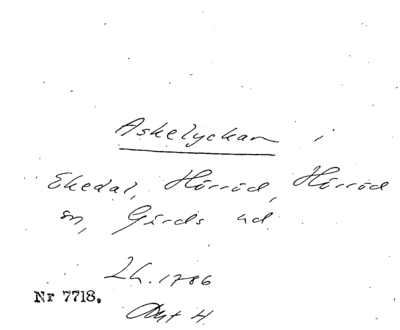 Askelyckan i
Ekedal, Hörröd, Hörröd
sn, Gärds hd
Lh. 1786
Akt 4
Nr 7718.